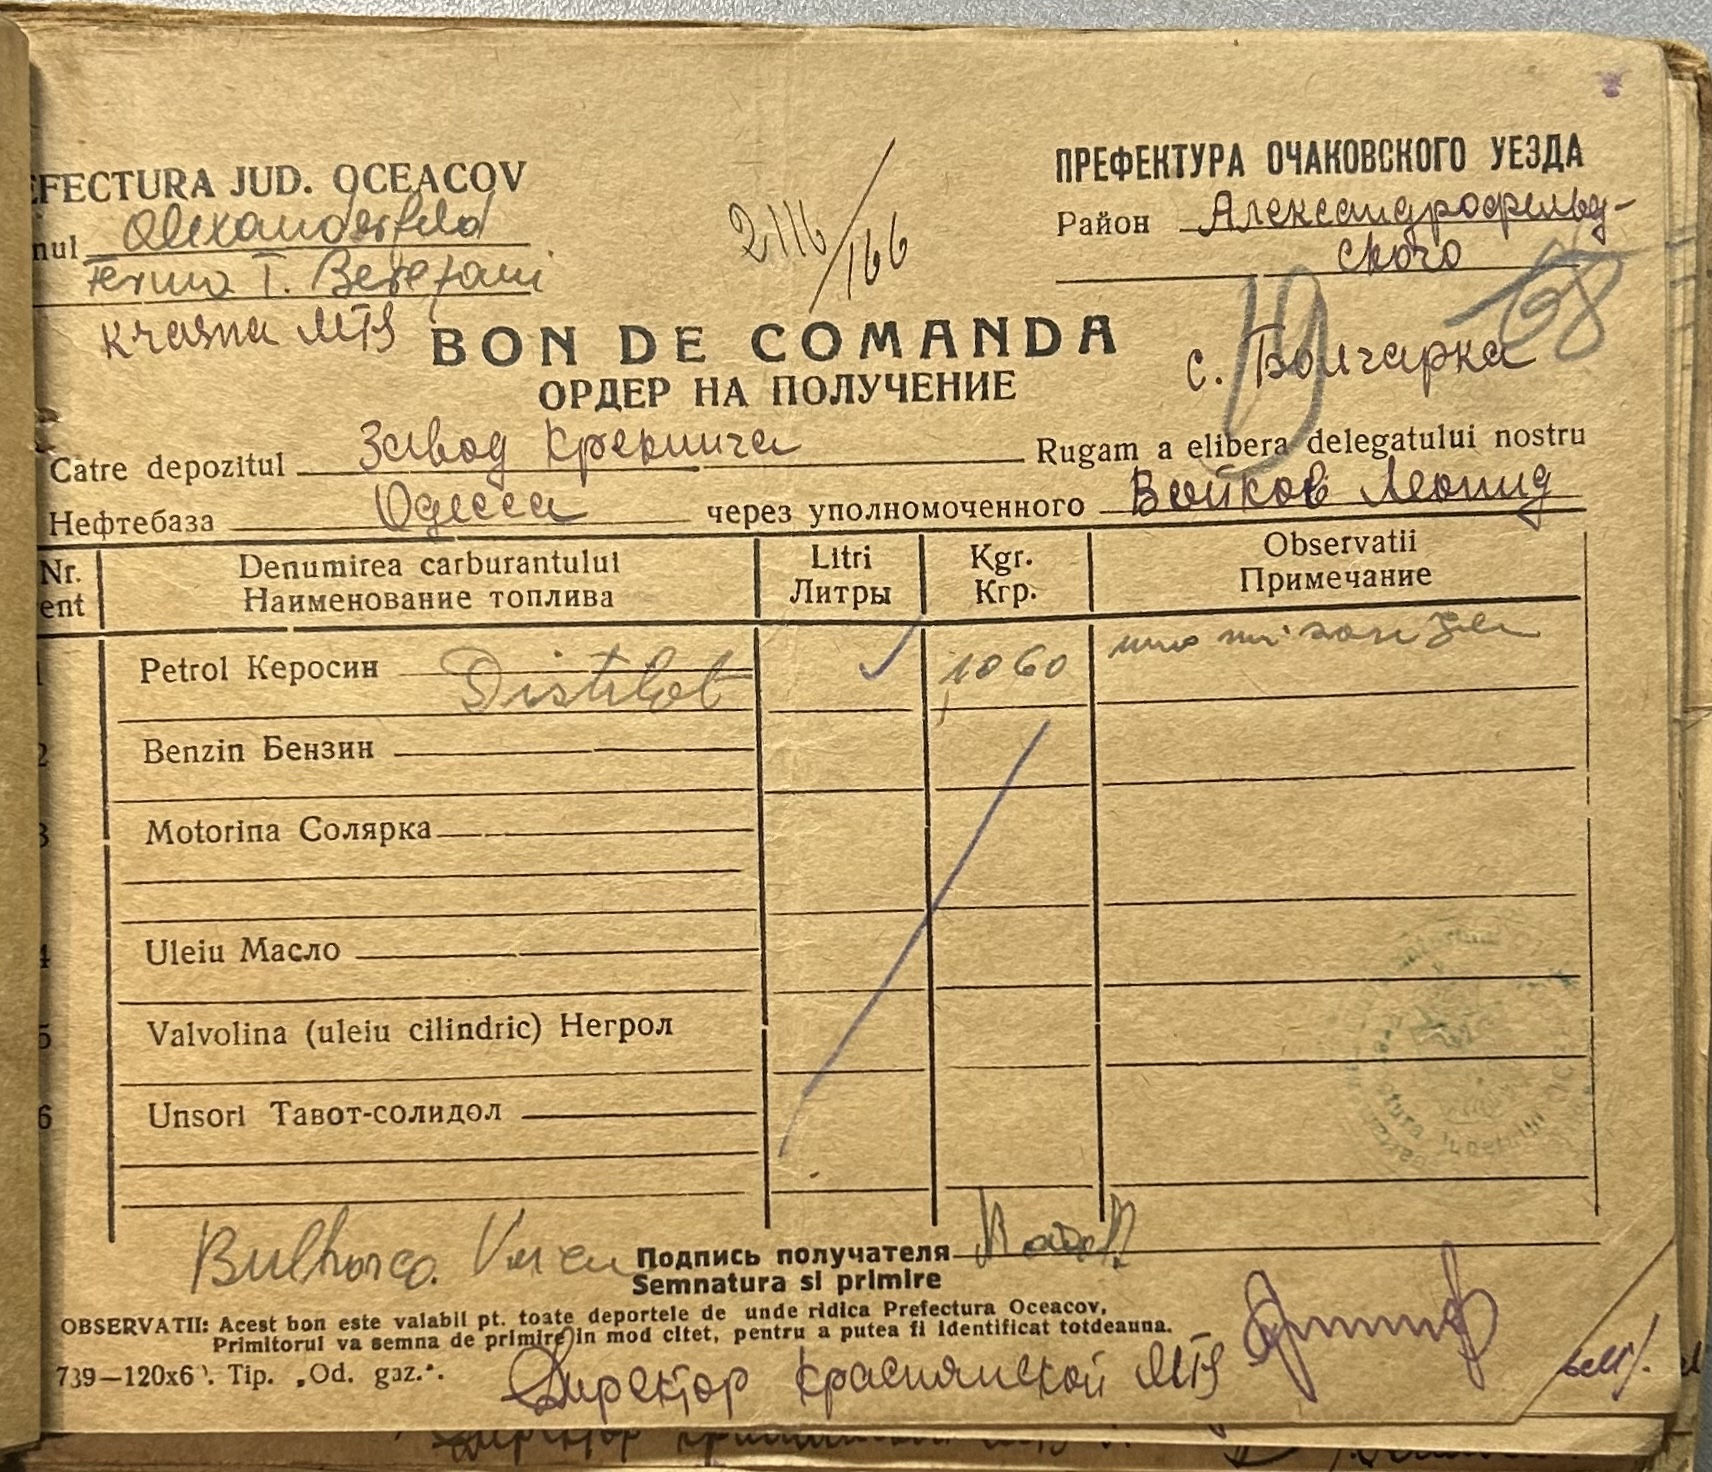 EFECTURA JUD. OCEACOV
nul Alexanderfeld
Ferma T. Berezani
Krasna MTS
2116/166
ПРЕФЕКТУРА ОЧАКОВСКОГО УЕЗДА
Район Александрофельд-
ского
19
68
с. Болгарка
BON DE COMANDA
ОРДЕР НА ПОЛУЧЕНИЕ
Catre depozitul Завод Крекинга Rugam a elibera delegatului nostru
Нефтебаза Одесса через уполномоченного Войков Леонид
Nr. Denumirea carburantului Litri Kgr. Observatii
ent Наименование топлива Литры Кгр. Примечание
1 Petrol Керосин Distilat 1060 una mi sanzeci
2 Benzin Бензин
3 Motorina Солярка
4 Uleiu Масло
5 Valvolina (uleiu cilindric) Негрол
6 Unsori Тавот-солидол
Подпись получателя
Semnatura si primire
OBSERVATII: Acest bon este valabil pt. toate deportele de unde ridica Prefectura Oceacov,
Primitorul va semna de primire in mod citet, pentru a putea fi identificat totdeauna.
739—120x6 . Tip. „Od. gaz.“.
Директор Краснянской МТS